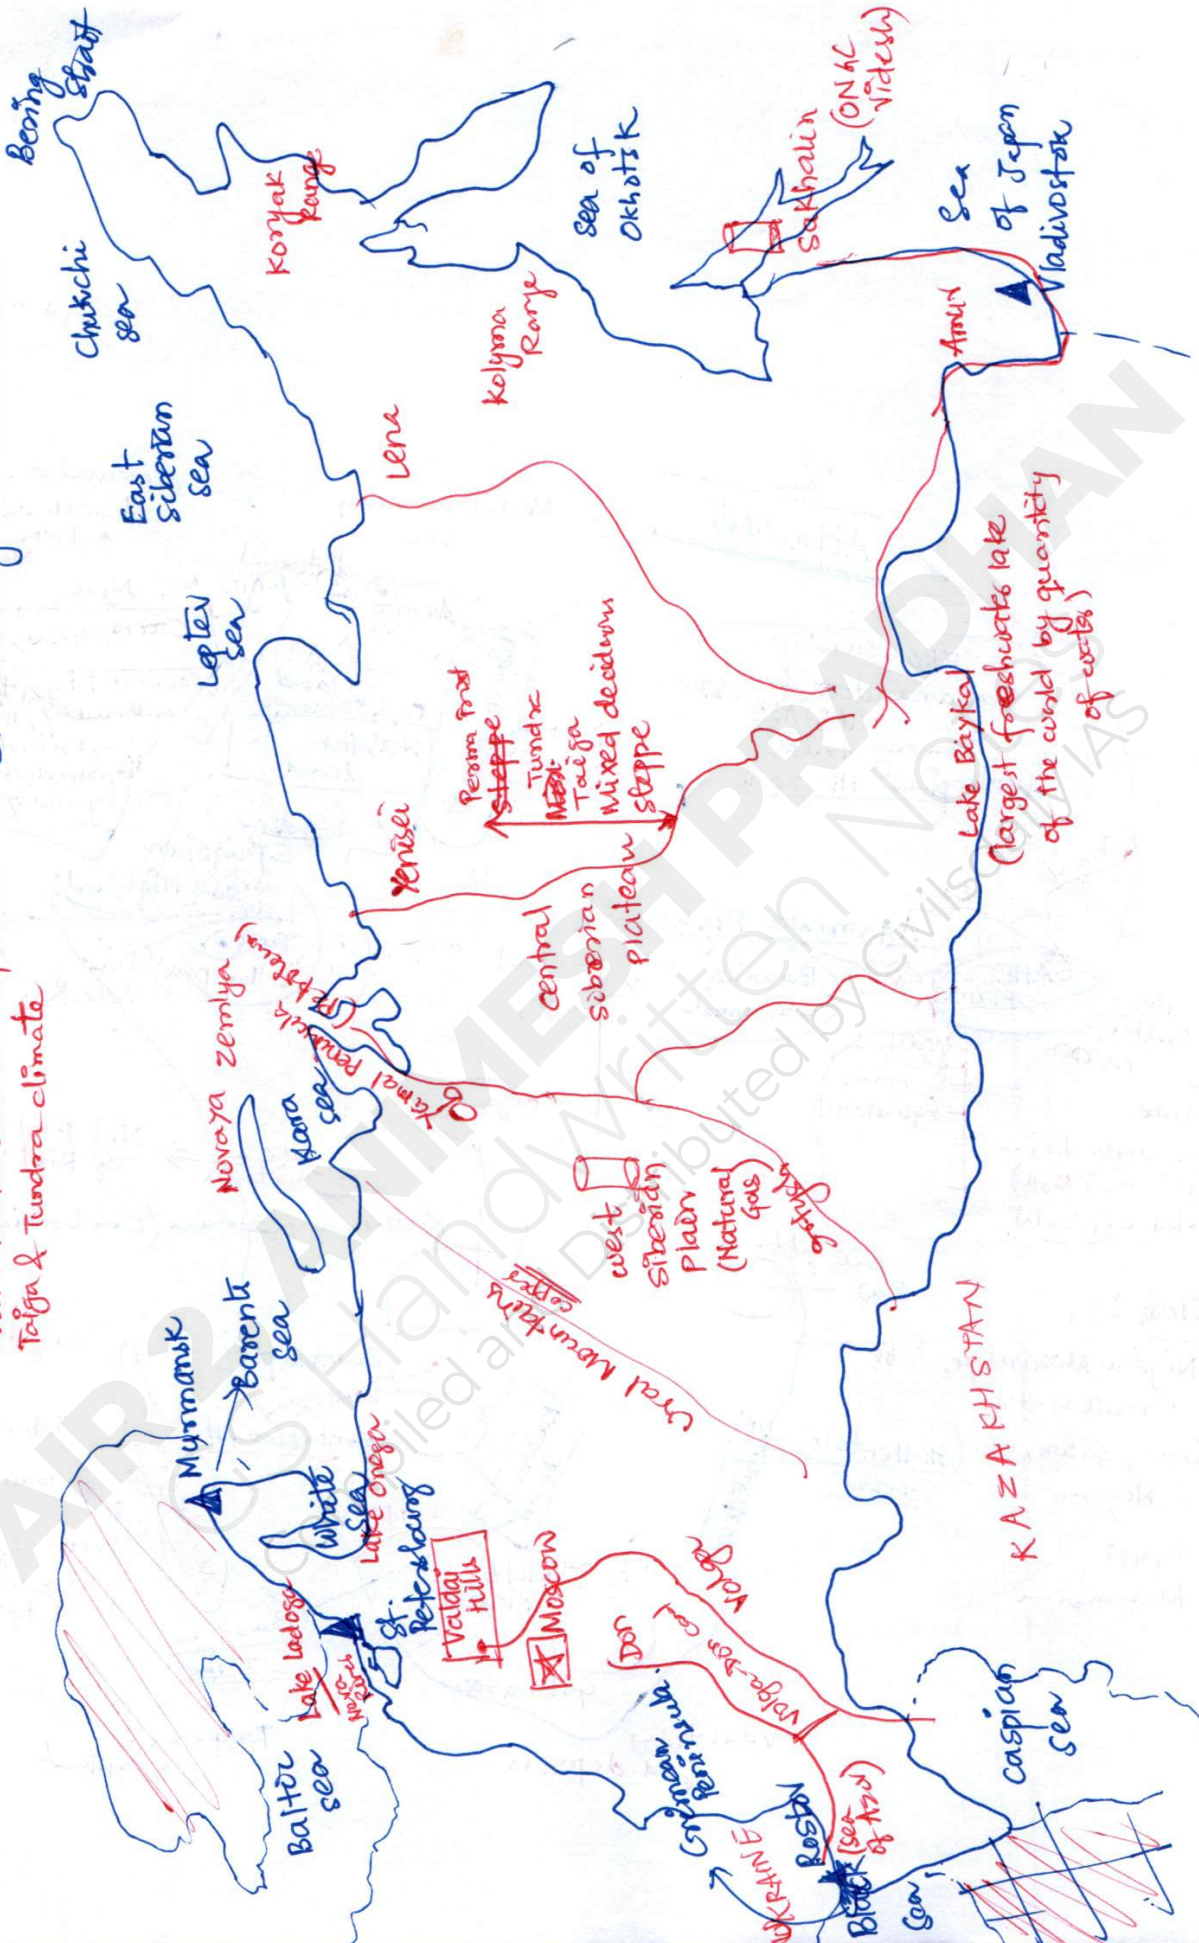 Taiga & Tundra climate
Bering
Strait
Chukchi
sea
East
Siberian
sea
Leptev
sea
Koryak
Range
Kolyma
Range
Sea of
Okhotsk
Sakhalin
(ONGC
Videsh)
Sea
of Japan
Vladivostok
Amur
Lena
Yenisei
Perma frost
Steppe
Tundra
Taiga
Mixed deciduous
Steppe
Central
Siberian
Plateau
Lake Baykal
(largest freshwater lake
of the world by quantity
of water)
Novaya Zemlya
Kara
Sea
Yamal Peninsula
(Petroleum)
Ob
West
Siberian
Plain
(Natural
Gas)
Ural Mountains
copper
KAZAKHSTAN
Murmansk
Barents
sea
White
Sea
Lake Onega
Lake Ladoga
St.
Petersburg
Baltic
sea
Valdai
Hills
Moscow
Volga
Don
Volga-Don Canal
Crimean
Peninsula
UKRAINE
Rostov
(Sea
of Azov)
Black
Sea
Caspian
Sea
AIR 2 ANIMESH PRADHAN
GS Handwritten Notes
Compiled and Distributed by CivilsdailyIAS